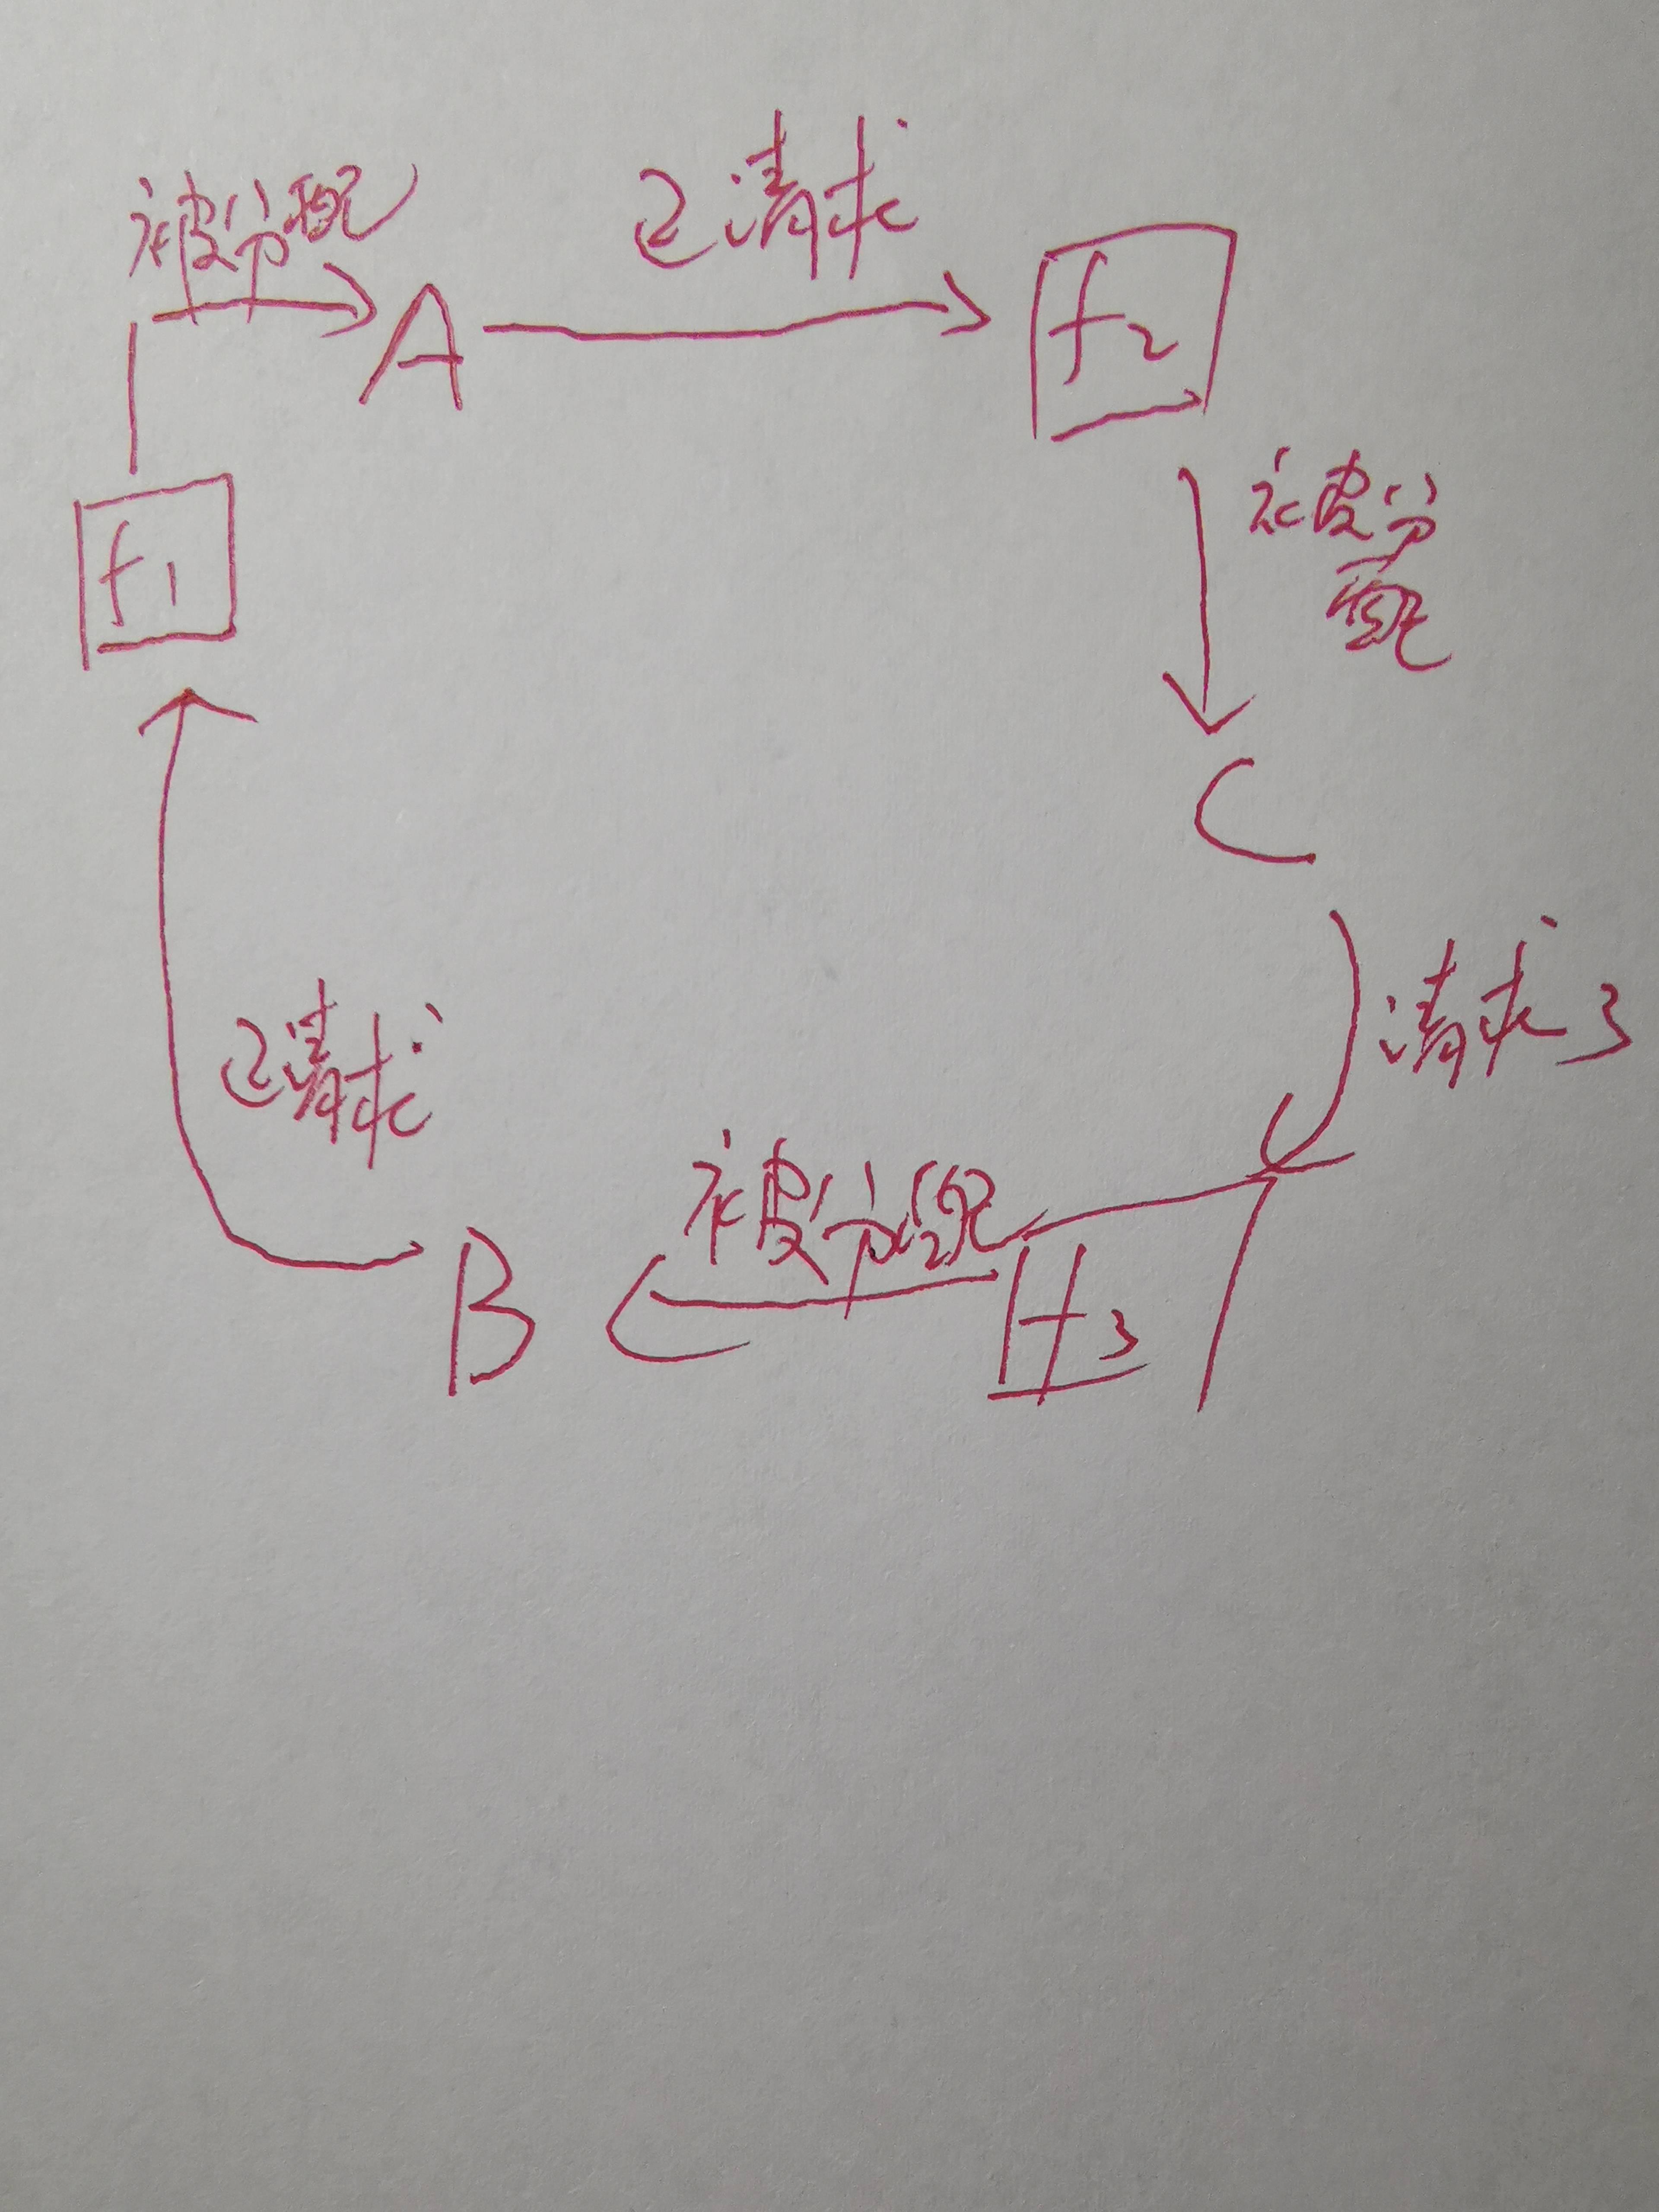 被分配
已请求
A
f2
f1
被分
配
C
请求3
已请求
被分配
B
f3